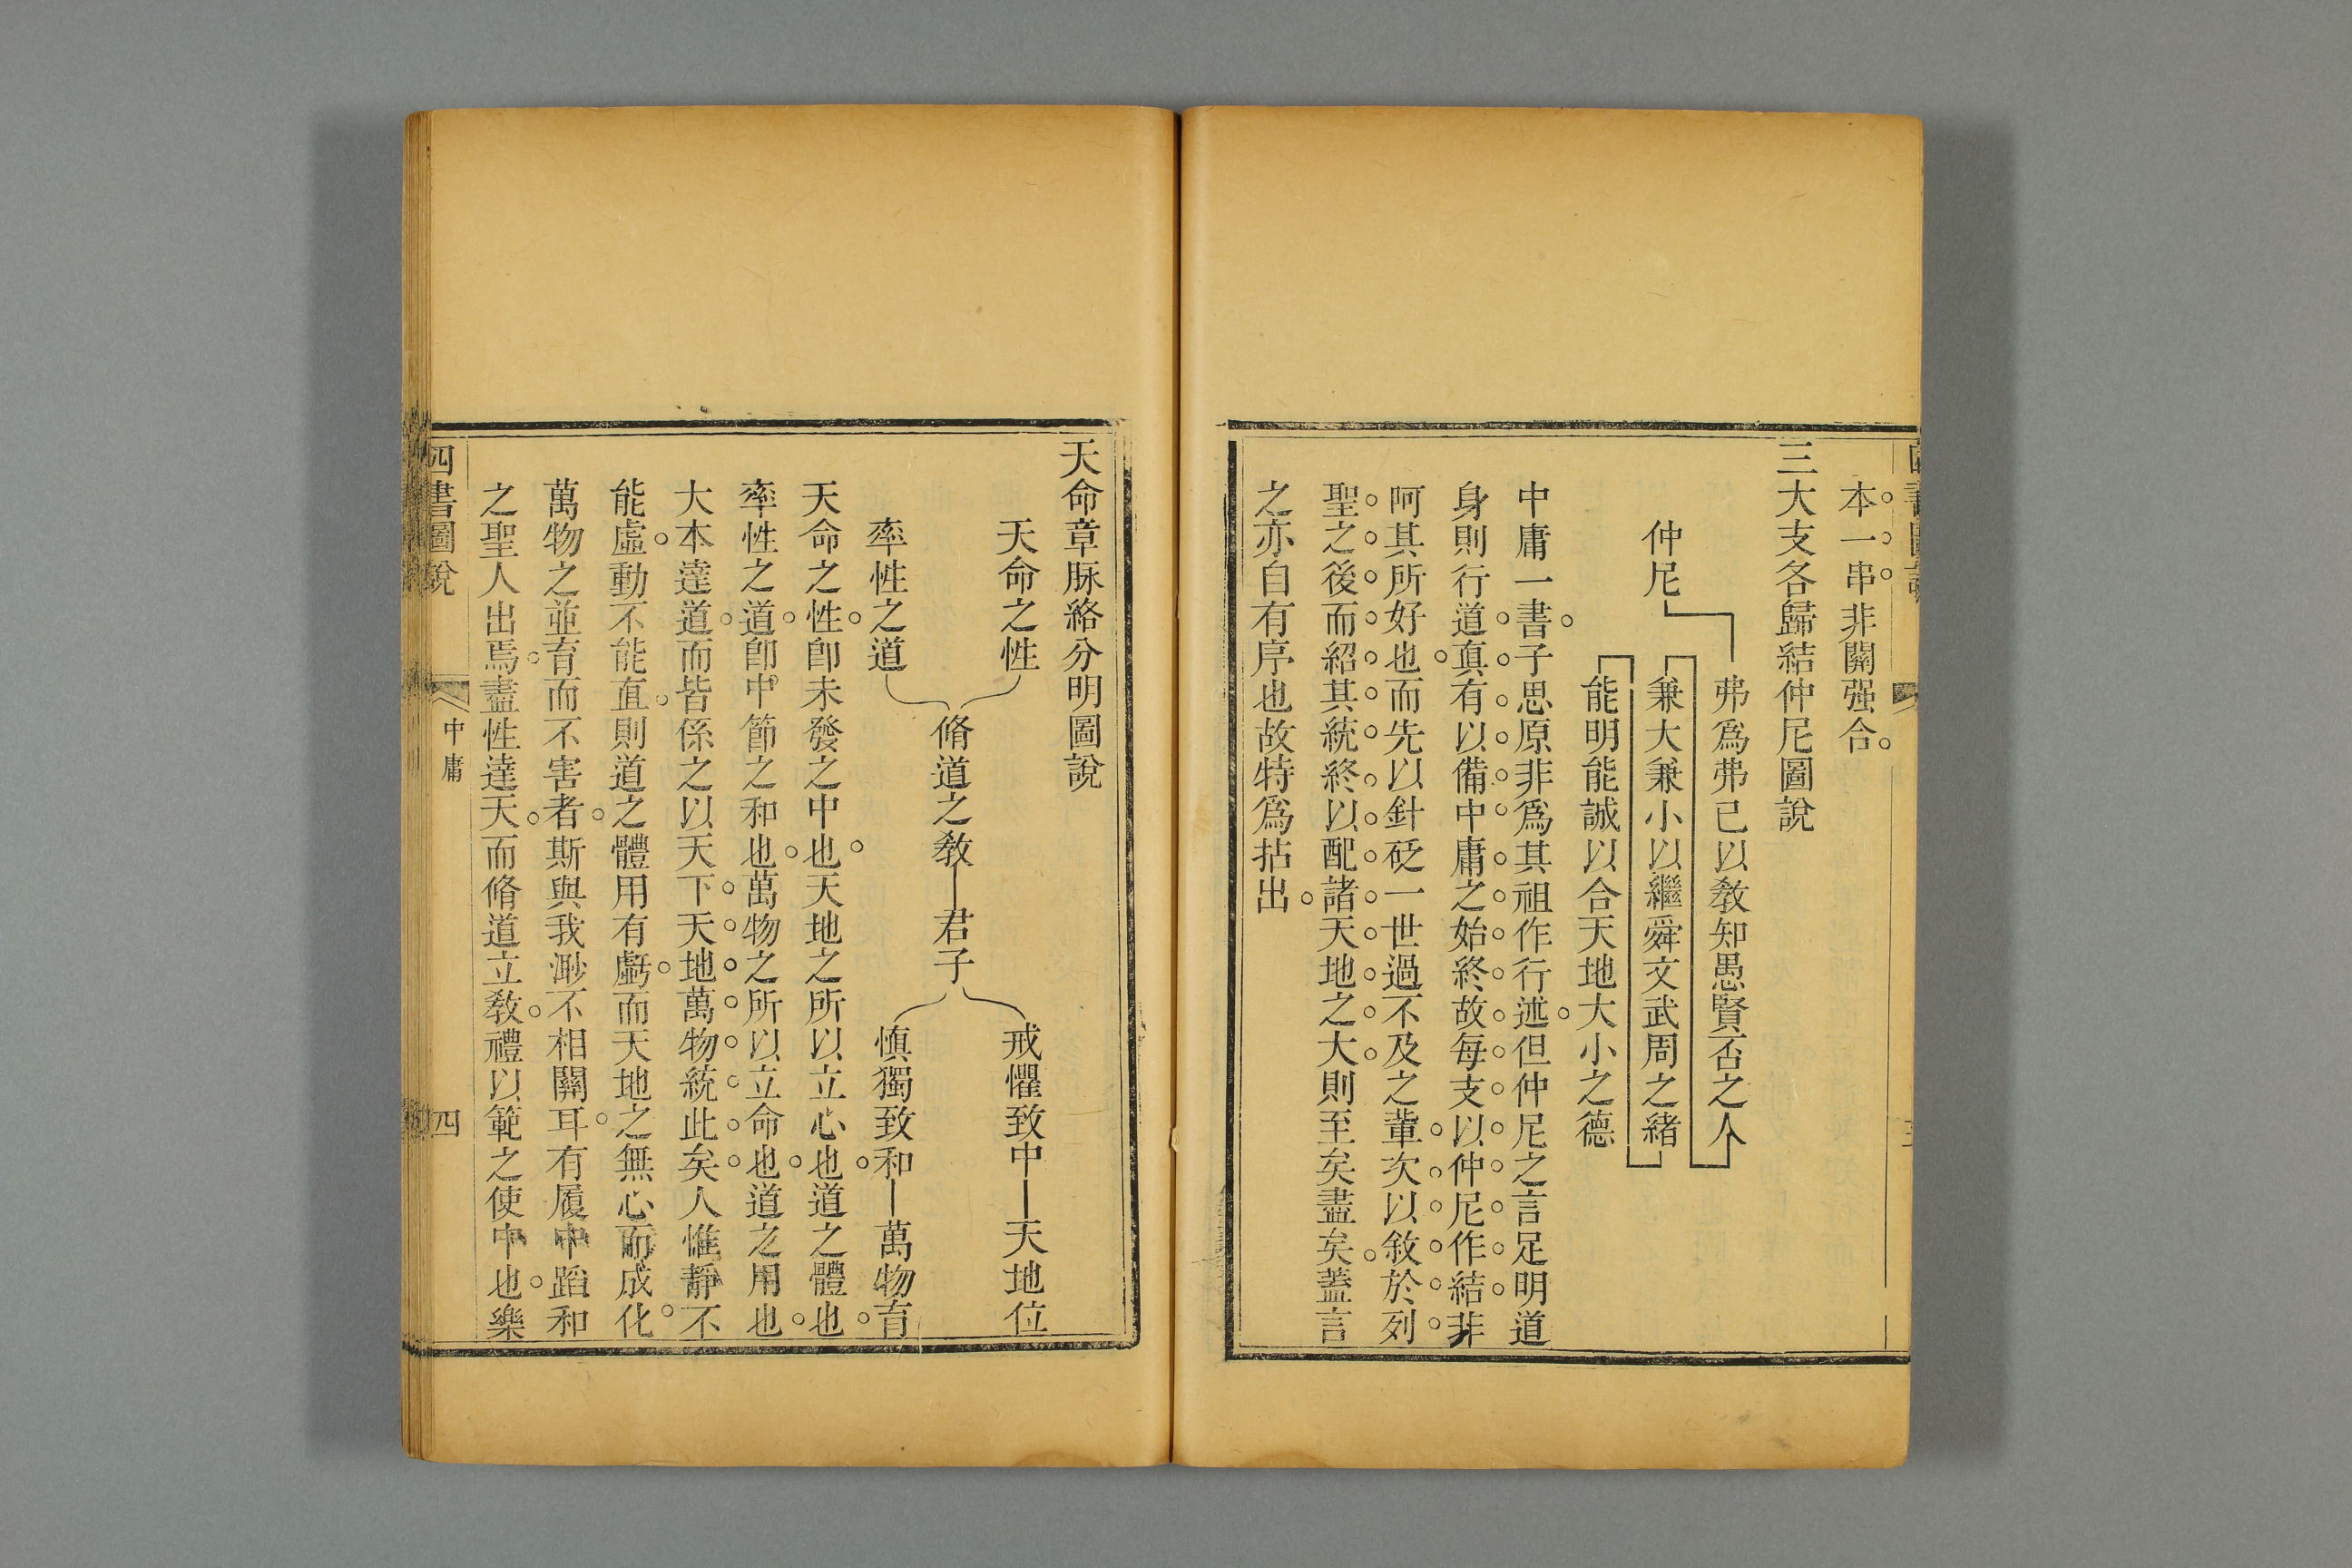 本一串非關强合
三大支各歸結仲尼圖說
仲尼
弗爲弗已以敎知愚賢否之人
兼大兼小以繼舜文武周之緒
能明能誠以合天地大小之德
中庸一書子思原非爲其祖作行述但仲尼之言足明道
身則行道眞有以備中庸之始終故每支以仲尼作結非
阿其所好也而先以針砭一世過不及之輩次以敘於列
聖之後而紹其統終以配諸天地之大則至矣盡矣蓋言
之亦自有序也故特爲拈出
天命章脉絡分明圖說
天命之性
率性之道
脩道之敎
君子
戒懼致中
天地位
慎獨致和
萬物育
天命之性卽未發之中也天地之所以立心也道之體也
率性之道卽中節之和也萬物之所以立命也道之用也
大本達道而皆係之以天下天地萬物統此矣人惟靜不
能虛動不能直則道之體用有虧而天地之無心而成化
萬物之並育而不害者斯與我渺不相關耳有履中蹈和
之聖人出焉盡性達天而脩道立敎禮以範之使中也樂
四書圖說
中庸
四